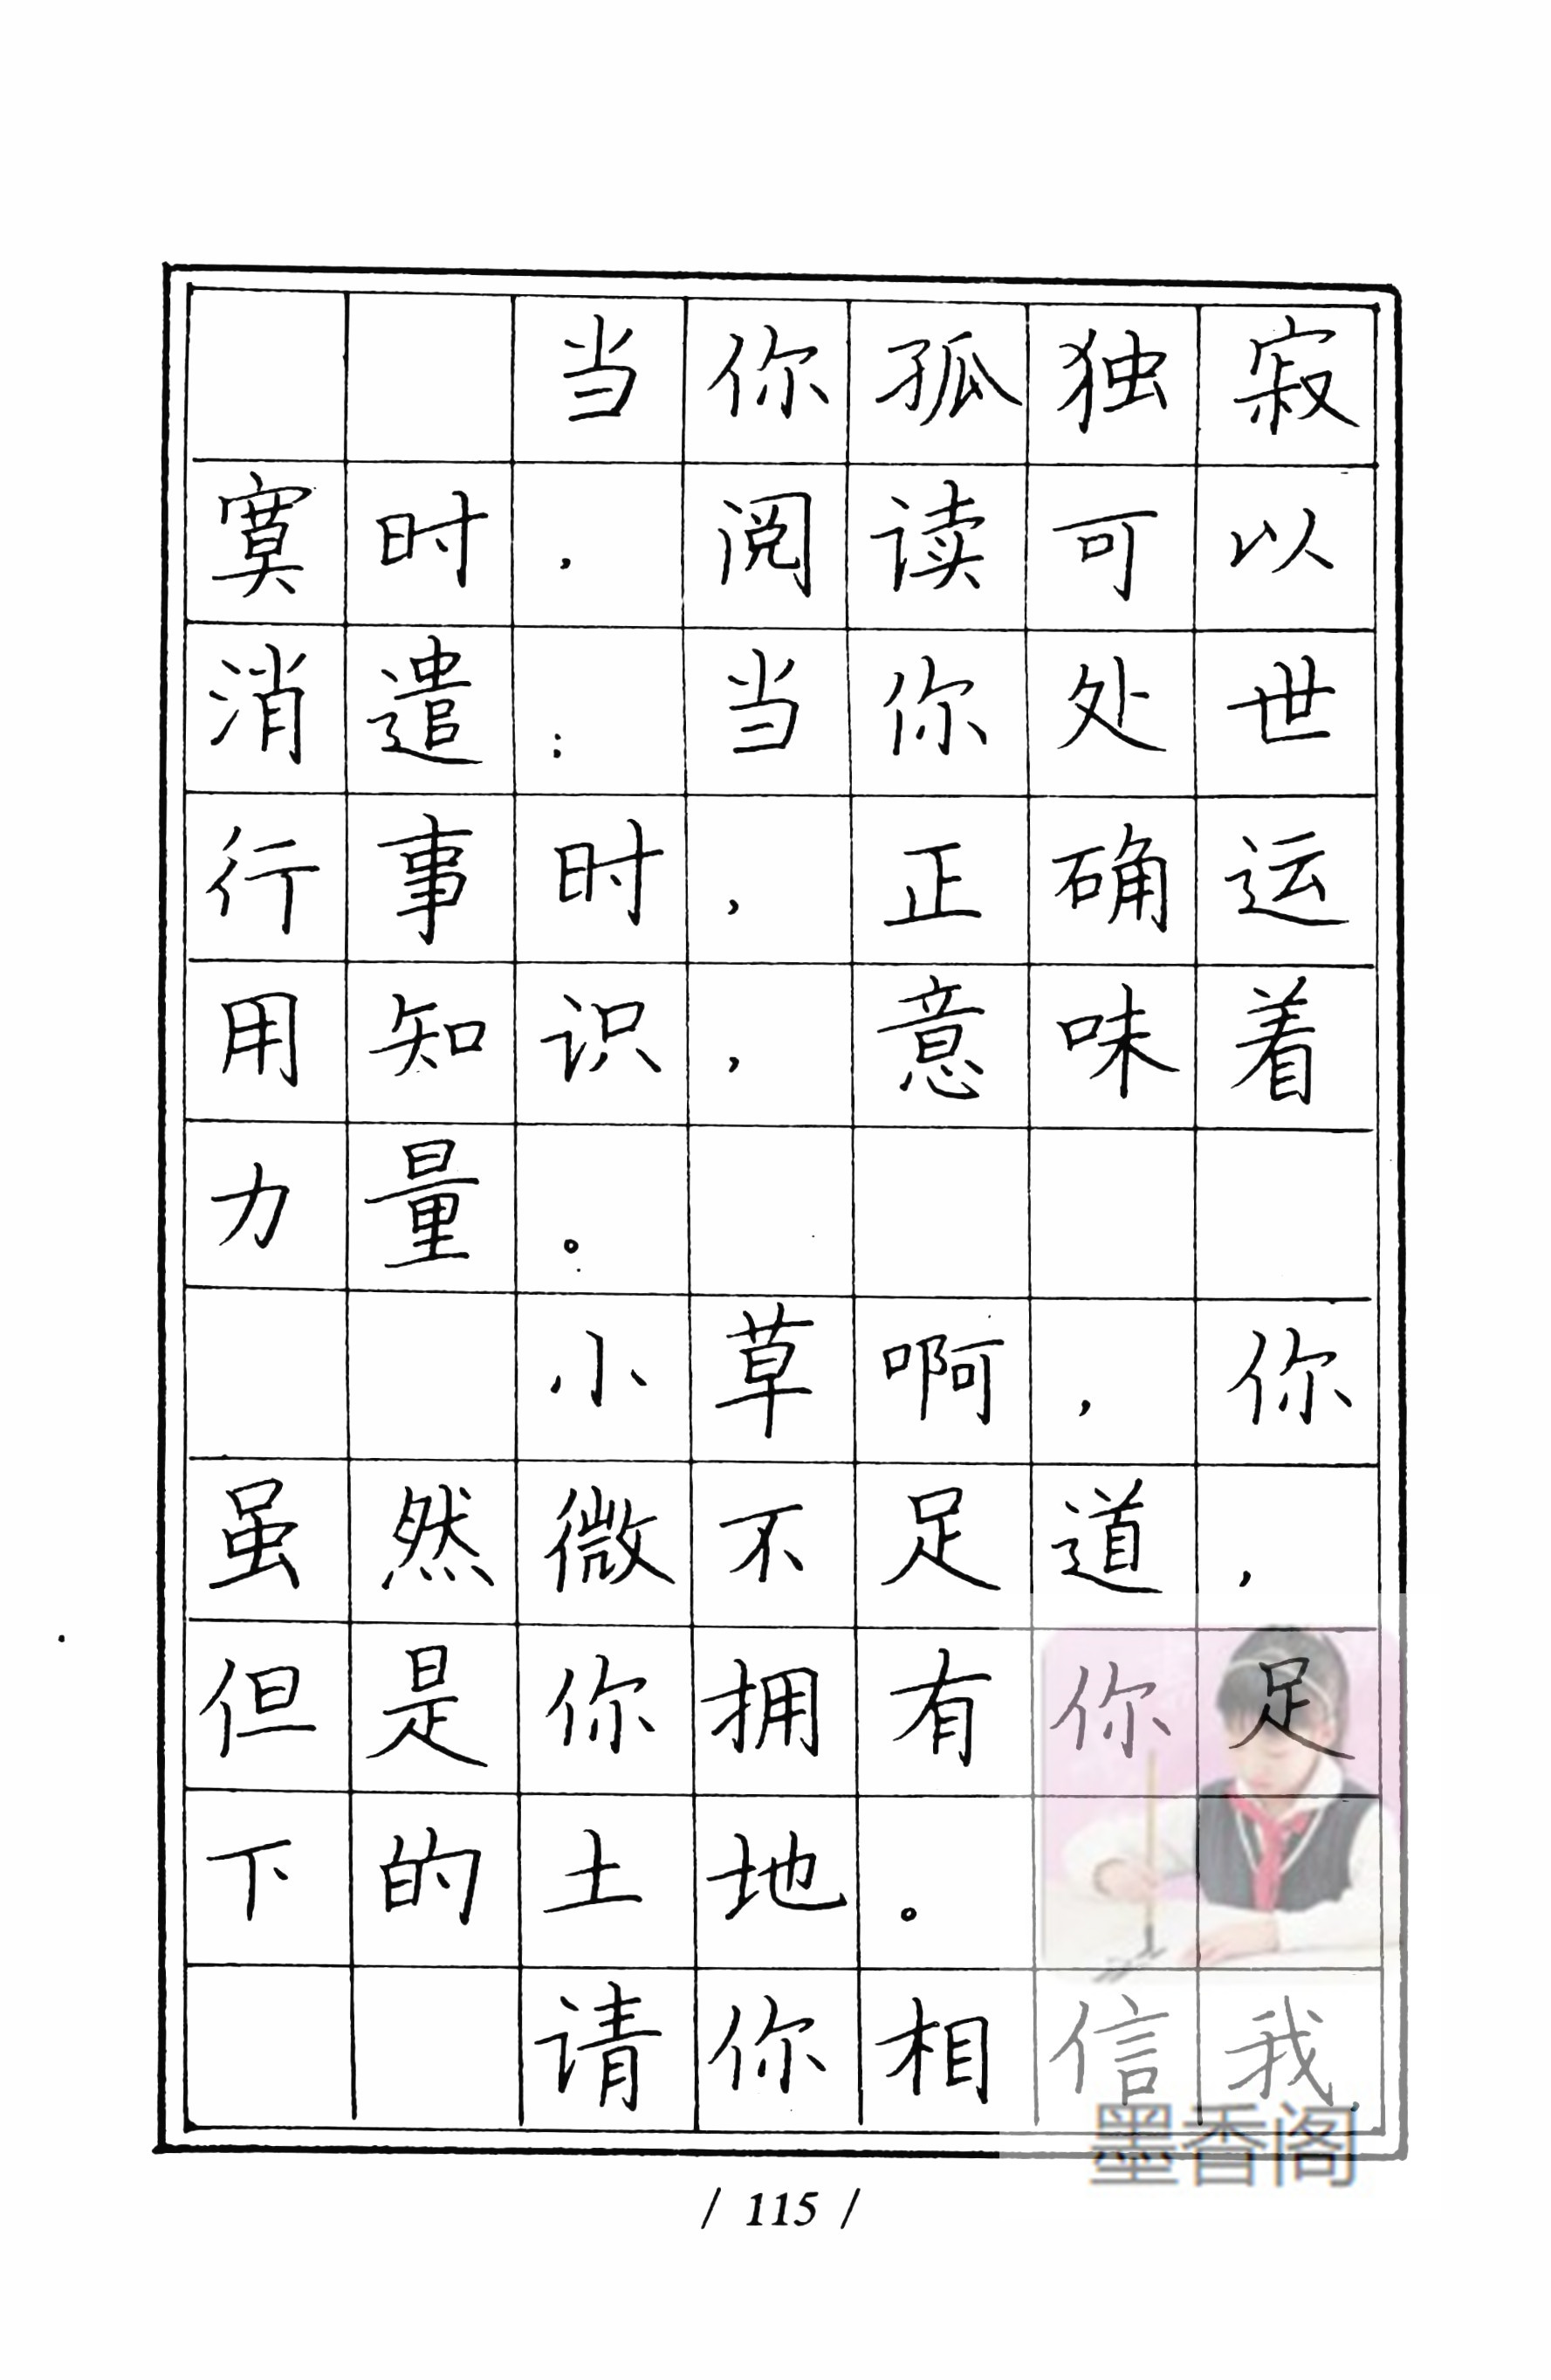 当你孤独寂
寞时，阅读可以
消遣；当你处世
行事时，正确运
用知识，意味着
力量。
小草啊，你
虽然微不足道，
但是你拥有你足
下的土地。
请你相信我，
墨香阁
/ 115 /